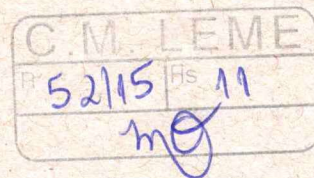 C.M. LEME
P 52/15 Fls 11